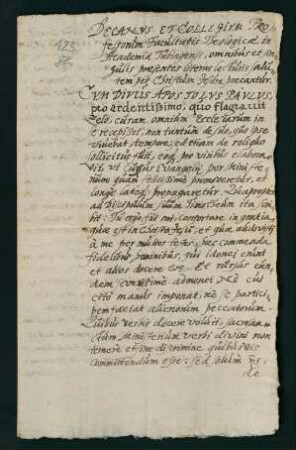 DECANUS ET COLLEGIUM Pro
fessorum Facultatis Theologicae in
Academia Tubingensi, omnibus et sin
gulis praesentes literas lecturis salu
tem per Christum precantur.
CUM DIVUS APOSTOLUS PAULUS,
pro ardentissimo, quo flagravit
Zelo, curam omnium Ecclesiarum in
se recepisset, non tantum de suo, quo ipse
vivebat, tempore, sed etiam de reliquo
sollicitus fuit, eoq pro viribus elabora
vit, ut Evangelii per ministe
rium quam felicissime promoveretur, et
longe lateq propagaretur. Quapropter
ad Discipulum suum Timotheum ita scri
bit: Tu ergo, fili mi, confortare in gratia
quae est in Christo Jesu, et quae audivisti
à me per multos testes, haec commenda
fidelibus hominibus, qui idonei erunt
et alios docere et rursus eun
dem admonet Ne cui
citò manus imponat, ne se partici
pem faciat alienorum peccatorum.
Quibus verbis docere voluit, sacrosan
ctum Ministerium verbi divini non
temere et sine discrimine quibusvis
committendum esse: sed